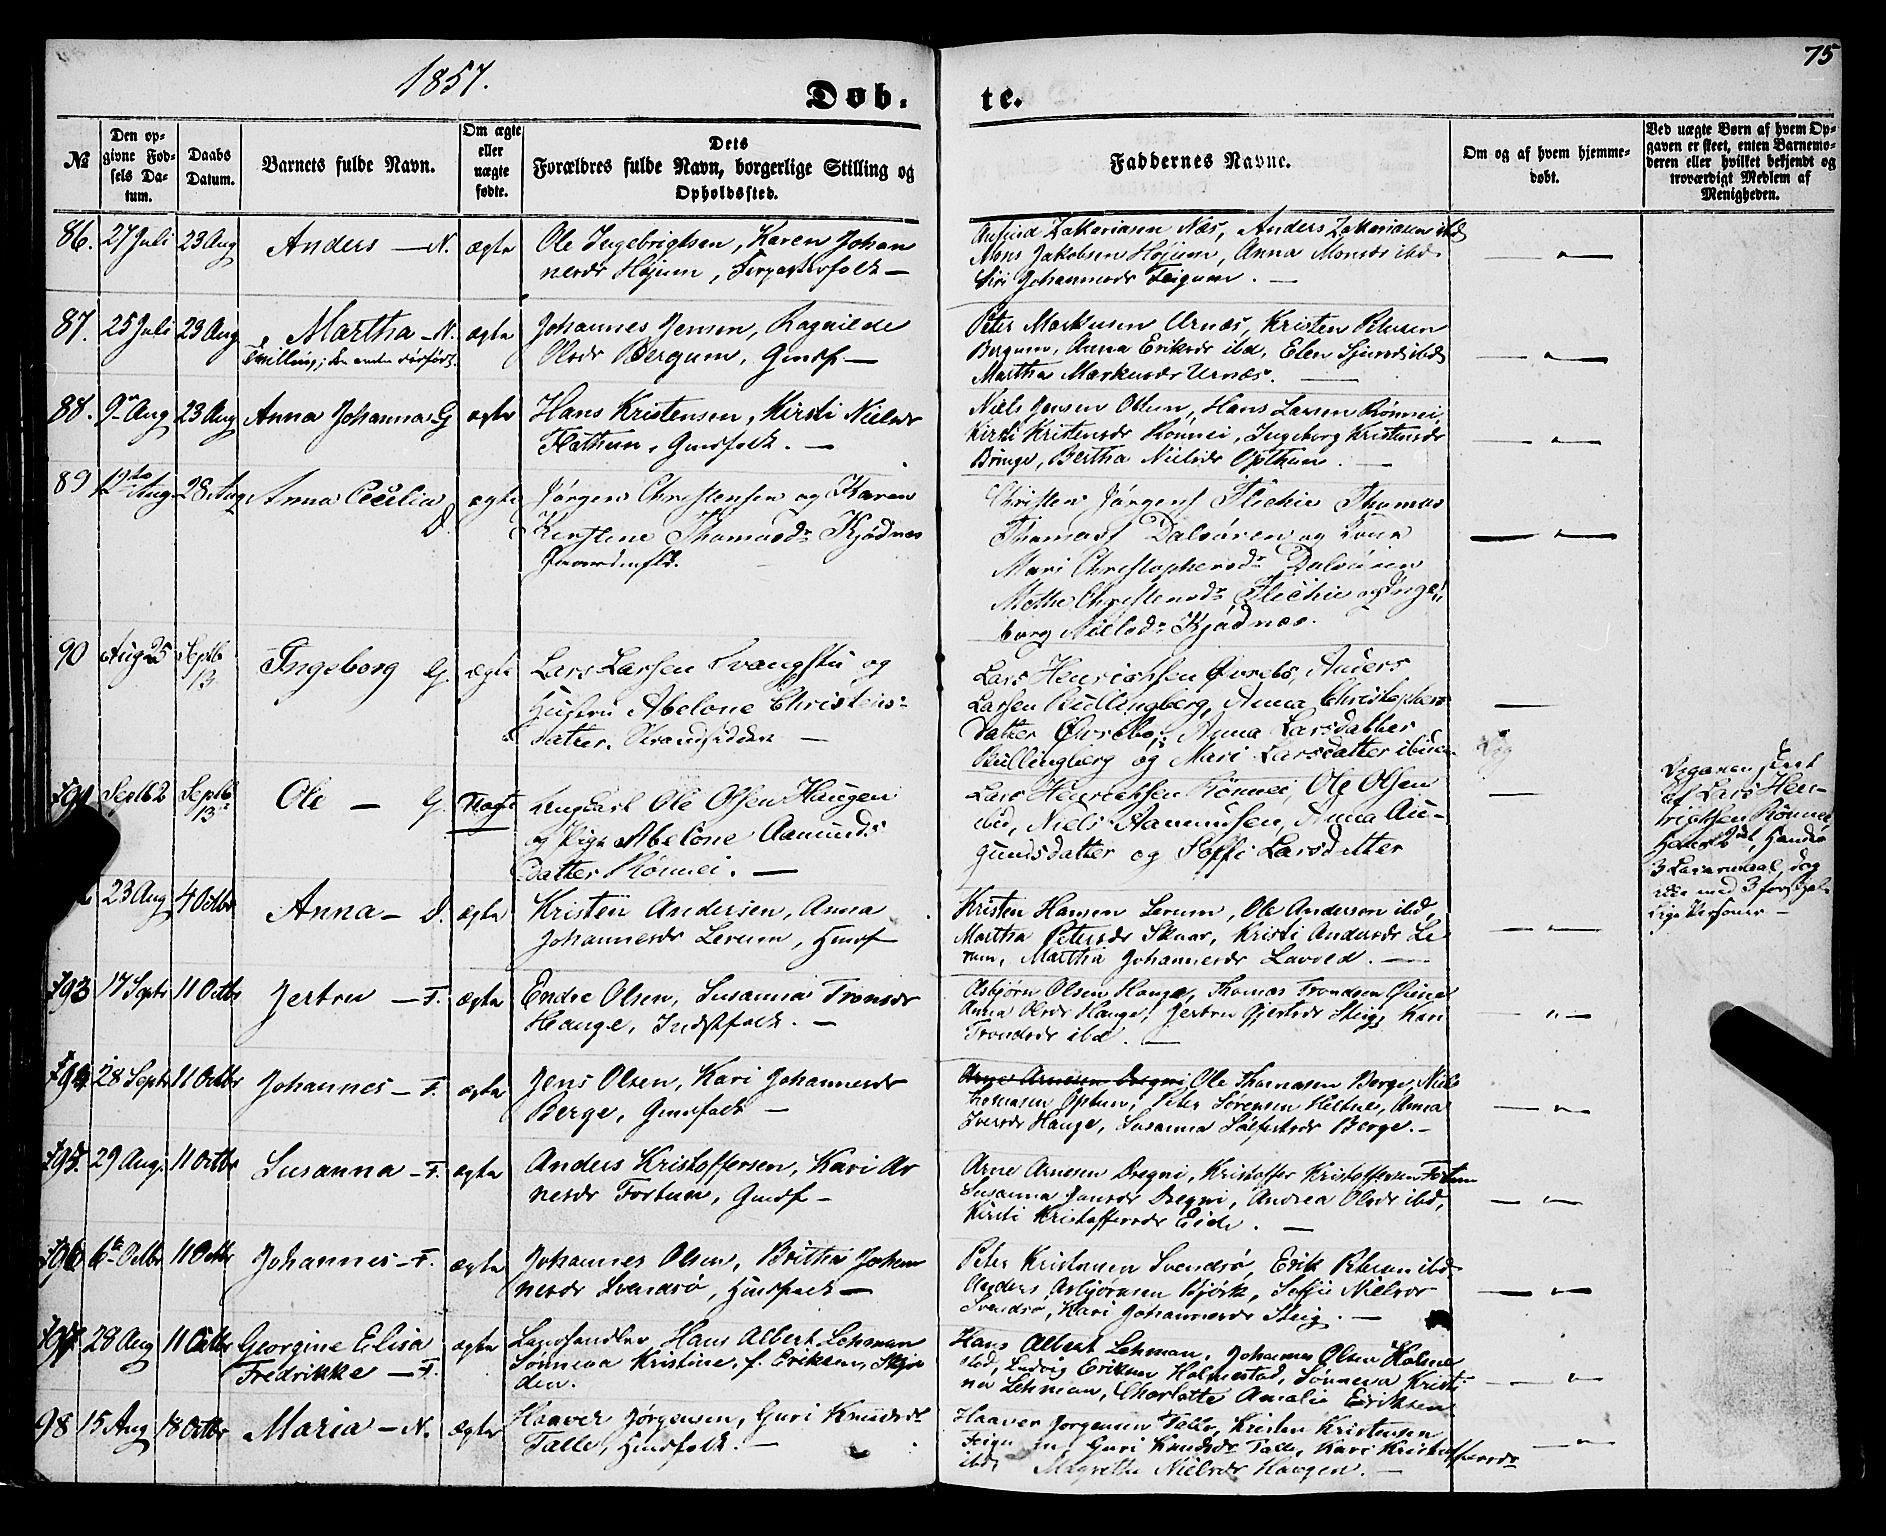 1857.
75
Døb. te.
№
Den opgivne Fødsels Datum.
Daabs Datum.
Barnets fulde Navn.
Om ægte eller uægte fødte.
Dets Forældres fulde Navn, borgerlige Stilling og Opholdssted.
Faddernes Navne.
Om og af hvem hjemmedøbt.
Ved uægte Børn af hvem Opgaven er skeet, enten Barnemoderen eller hvilket bekjendt og troværdigt Medlem af Menigheden.
86. 27 Juli 23 Aug Anders — N. ægte
Ole Ingebrigtsen, Karen Johan
nesdr Højum,
Zakariasen Næs, Anders Zakariasen ibd
Mons Jakobsen Højum, Anna Monsdr ibd.
Siri Johannesdr Feigum. —
87. 25 Juli 23 Aug Martha — N. ægte
Tvilling; den anden dødfødt.
Johannes Jensen, Ragnilde
Olsdr Bergum, Gmdf —
Peter Markusen Urnæs, Kristen Petersen
Bergum, Anna Eriksdr ibd, Elen Sjursdr ibd
Martha Markusdr Urnæs. —
88. 9 Aug 23 Aug Anna Johanna G ægte
Hans Kristensen, Kirsti Nielsdr
Flathun, Gmdfolk. —
Niels Jensen Ottum, Hans Larsen Rønnei,
Kirsti Kristensdr Rønnei, Ingeborg Kristensdr
Bringe, Bertha Nielsdr Opthun. —
89 12te Aug. 28 Aug. Anna Cecilia D. ægte
Jørgen Christensen og Karen
Kirstene Thomasdr Kjødnes
Christen Jørgens Flichie Thomas
Thomass Dalsøren og Kona
Mari Christophersdr Dalsøren
Mette Christensdr Flichie og Inge
borg Nielsdr Kjødnes.
90 Aug 25 Septb 13 Ingeborg G. ægte
Lars Larsen Kvangstu og
Hustru Abelone Christens-
datter.
Lars Henrichsen Øvrebø, Anders
Larsen Bullingberg, Anna Christophers
datter Øvrebø, Anna Larsdatter
Bullingberg og Mari Larsdatter ibidem
91 Septb 2 Septb 13 Ole — G. Uægte
Ungkarl Ole Olsen Haugen
og Pige Abelone Aamunds
datter Rønnei. —
Lars Henrichsen Rønnei, Ole Olsen
ibid, Niels Aamundsen, Anna Au-
gundsdatter og Soffi Larsdatter
Opgaven skeet
af Lars Hen-
richsen Rønnei
Hans 2det, Hendes
3 Leiermaal, dog
ikke med 3 forskjel-
lige Personer —
23 Aug 4 Octbr Anna — D. ægte
Kristen Andersen, Anna
Johannesdr Lerum, Gmdf
Kristen Hansen Lerum, Ole Andersen ibd,
Martha Petersdr Skaar, Kristi Andersdr Le
rum, Martha Johannesdr Lavold. —
93 17 Septr 11 Octbr Jertru — F. ægte
Endre Olsen, Susanna Tronsdr
Hauge, Indstfolk. —
Asbjørn Olsen Hauge, Thomas Trondsen
Anna Olsdr Hauge, Jertru Gjertsdr Steig, Kari
Trondsdr ibd. —
94 28 Septr 11 Octbr Johannes — F. ægte
Jens Olsen, Kari Johannesdr
Berge, Gmdfolk —
Arne Arnesen Dregni, Ole Thomasen Berge, Niels
Thomasen Optun, Peter Sørensen Heltnes, Anna
Iversdr Hauge, Susanna Berge. —
95. 29 Aug. 11 Octbr Susanna — F. ægte
Anders Kristoffersen, Kari Ar
nesdr Fortun, Gmdf —
Arne Arnesen Dregni, Kristoffer Kristoffersen Fortun
Susanna Jonsdr Dregni, Andrea Olsdr ibd,
Kirsti Kristoffersdr Eide. —
96 6te Octbr 11 Octbr Johannes — F. ægte
Johannes Olsen, Britha Johan
nesdr Svensrø, Hmdfolk —
Peter Kristensen Svendsrø, Erik Petersen ibd.
Anders Asbjørnsen Bjørk, Sofie Nielsdr
Svendsrø, Kari Johannesdr Steig. —
97. 28 Aug 11 Octbr Georgine Elisa
Fredrikke — F. ægte
Landhandler Hans Albert Lehman
Sønneva Kristine, f. Eriksen, Skjol
den.
Hans Albert Lehman, Johannes Olsen Holme
stad, Ludvig Eriksen Holmestad, Sønneva Kristi
ne Lehman, Charlotte Amalie Eriksen
98 15 Aug 18 Octbr Maria — N. ægte
Haaver Jørgensen, Guri Knudsdr
Talle, Hmdfolk. —
Haaver Jørgensen Talle, Kristen Kristensen
Feigum, Guri Knudsdr Talle, Kari Kristoffersdr
ibd. Magrethe Nielsdr Haugen. —